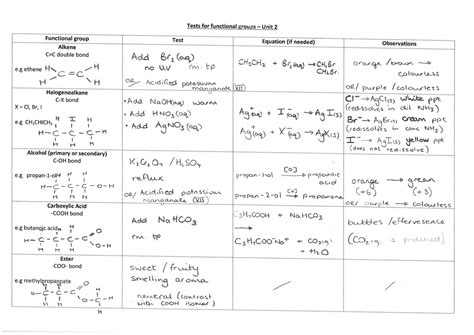 Tests for functional groups – Unit 2
Functional group
Test
Equation (if needed)
Observations
Alkene
C=C double bond
e.g ethene
H H
C = C
H H
Add Br₂(aq)
no UV rm. tp
OR/ Acidified potassium
manganate (VII)
CH₂CH₂ + Br₂(aq) → CH₂Br
CH₂Br
orange/brown →
colourless
OR/ purple / colourless
Halogenoalkane
C-X bond
X = Cl, Br, I
e.g CH₃CHICH₃
H I H
H – C – C – C – H
H H H
• Add NaOH(aq) warm
• Add HNO₃(aq)
• Add AgNO₃(aq)
Ag⁺(aq) + I⁻(aq) → AgI(s)
Ag⁺(aq) + X⁻(aq) → AgX(s)
Cl⁻ → AgCl(s) white ppt
(redissolves in dil NH₃)
Br⁻ → AgBr(s) cream ppt
(redissolves in conc NH₃)
I⁻ → AgI(s) yellow ppt
(does not redissolve)
Alcohol (primary or secondary)
C-OH bond
e.g propan-1-ol
H H H
H – C – C – C – O – H
H H H
K₂Cr₂O₇ / H₂SO₄
reflux
OR/ Acidified potassium
manganate (VII)
propan-1-ol [O] → propanoic
acid
propan-2-ol [O] → propanone
orange → green
(+6) (+3)
OR/ purple → colourless
Carboxylic Acid
-COOH bond
e.g butanoic acid
H H H O
H – C – C – C – C
H H H O – H
Add NaHCO₃
rm. tp
C₃H₇COOH + NaHCO₃
→
C₃H₇COO⁻Na⁺ + CO₂(g)
+ H₂O
bubbles / effervesence
(CO₂(g) produced)
Ester
-COO- bond
e.g methylpropanoate
H H O H
H – C – C – C O – C – H
H H H
sweet / fruity
smelling aroma
neutral (contrast
with COOH isomer)